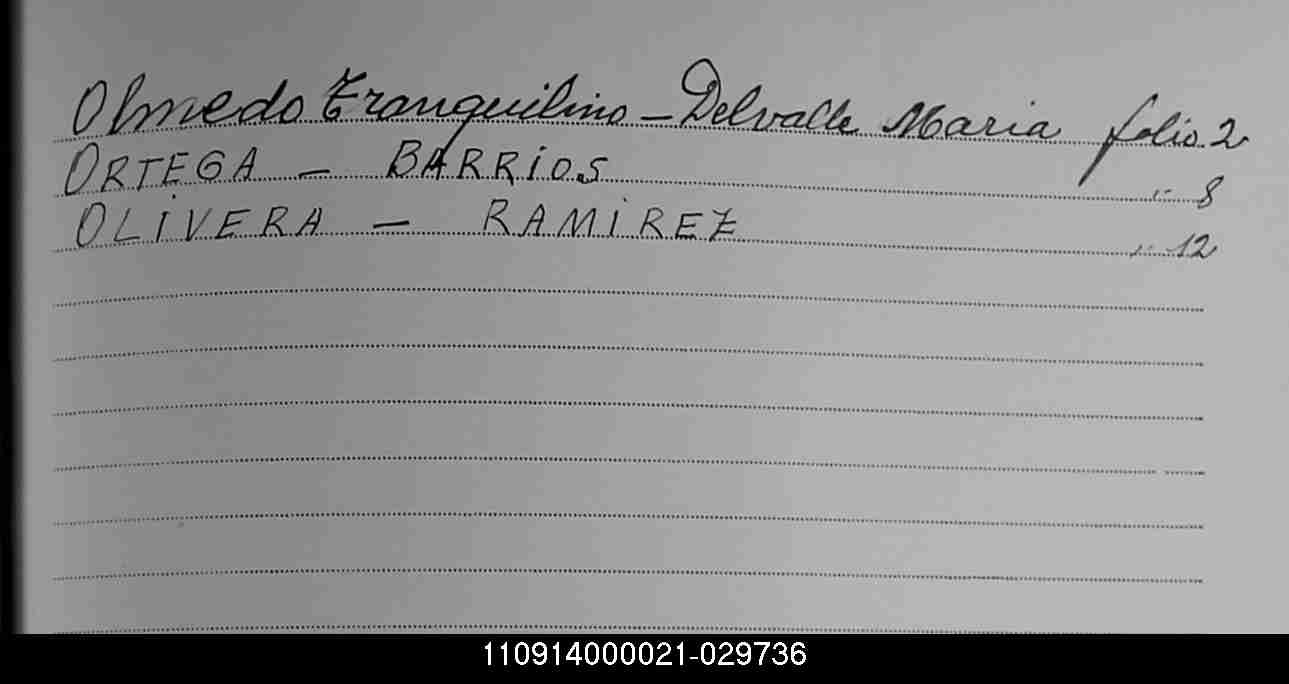 Olmedo Tranquilino - Delvalle Maria folio 2
ORTEGA - BARRIOS " 8
OLIVERA - RAMIREZ " 12
110914000021-029736